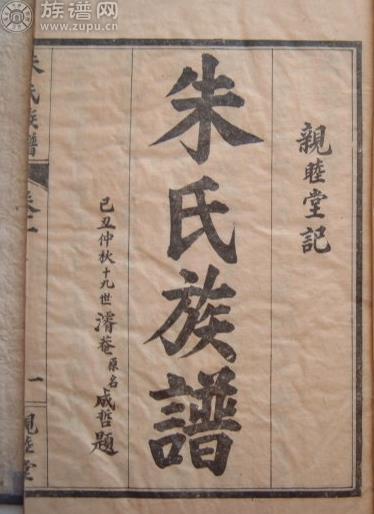 親睦堂記
朱氏族譜
己丑仲秋十九世濬菴原名成哲題
朱氏族譜
卷一
一
親睦堂
族谱网
www.zupu.cn